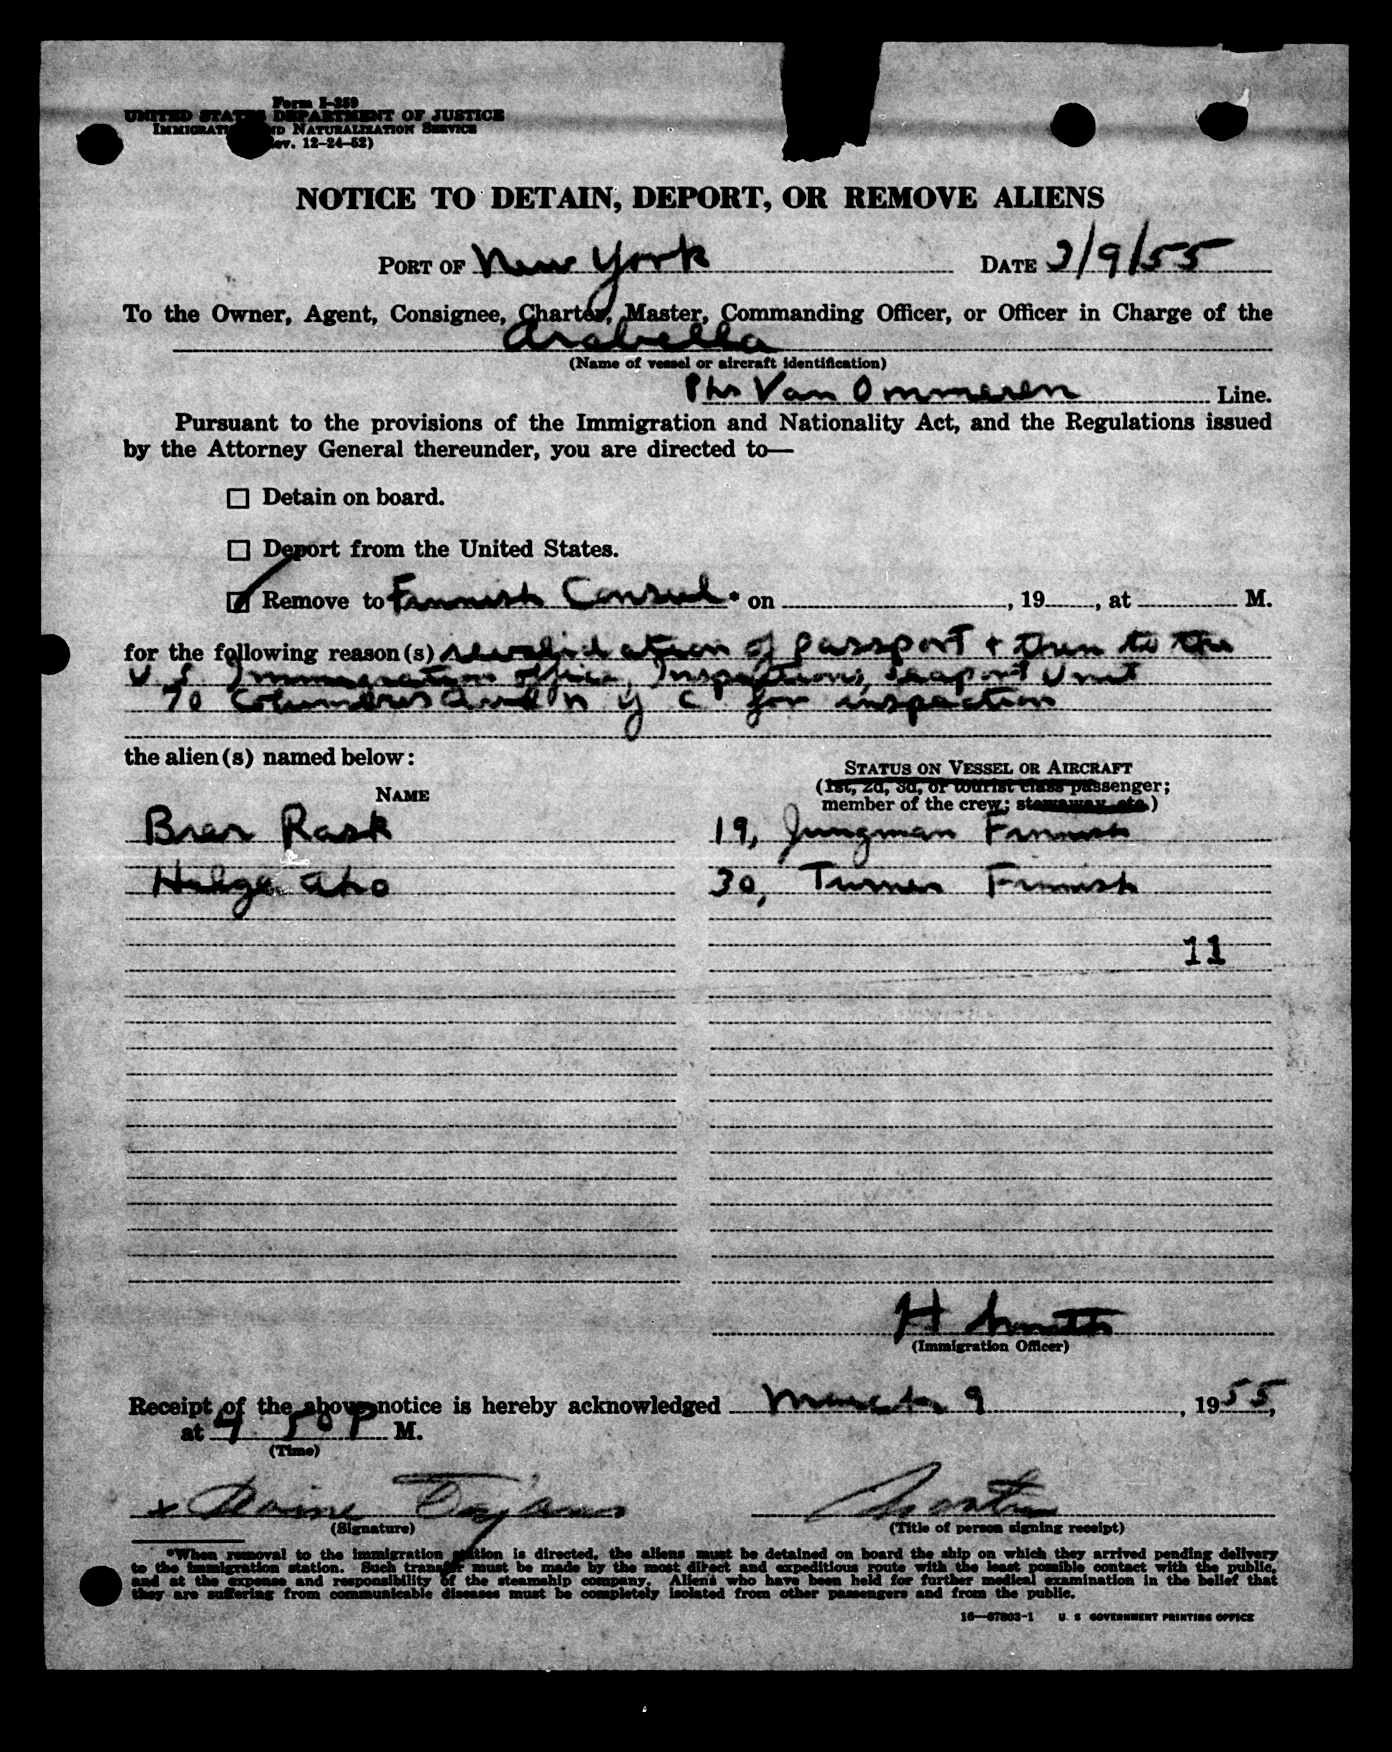 Form I-259
UNITED STATES DEPARTMENT OF JUSTICE
IMMIGRATION AND NATURALIZATION SERVICE
(Rev. 12-24-52)
NOTICE TO DETAIN, DEPORT, OR REMOVE ALIENS
PORT OF New York DATE 3/9/55
To the Owner, Agent, Consignee, Charter, Master, Commanding Officer, or Officer in Charge of the
Arabella
(Name of vessel or aircraft identification)
Phs Van Ommeren Line.
Pursuant to the provisions of the Immigration and Nationality Act, and the Regulations issued
by the Attorney General thereunder, you are directed to—
☐ Detain on board.
☐ Deport from the United States.
☑ Remove to Finnish Consul * on , 19 , at M.
for the following reason(s) revalidation of passport + then to the
U S Immigration office, Inspections, Seaport Unit
70 Columbus Ave N Y C for inspection
the alien(s) named below:
NAME
STATUS ON VESSEL OR AIRCRAFT
(1st, 2d, 3d, or tourist class passenger;
member of the crew; stowaway, etc.)
Rask 19, Jungman Finnish
Helge Aho 30, Turner Finnish
11
H
(Immigration Officer)
Receipt of the above notice is hereby acknowledged March 9 , 1955,
at 4 50 P M.
(Time)
x
(Signature) (Title of person signing receipt)
*When removal to the immigration station is directed, the aliens must be detained on board the ship on which they arrived pending delivery
to the immigration station. Such transfer must be made by the most direct and expeditious route with the least possible contact with the public,
and at the expense and responsibility of the steamship company. Aliens who have been held for further medical examination in the belief that
they are suffering from communicable diseases must be completely isolated from other passengers and from the public.
16—67803-1 U. S. GOVERNMENT PRINTING OFFICE